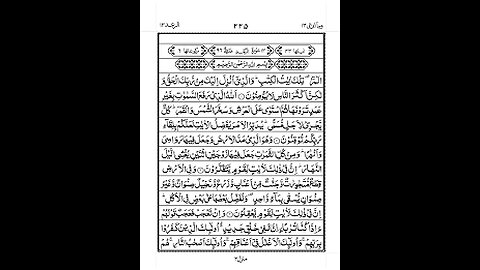 الرعد ١٣
٢٢٥
وما ابرئ ١٣
بسم الله الرحمن الرحيم
الٓمّٓرٰ ۟ تِلْكَ اٰيٰتُ الْكِتٰبِ ؕ وَالَّذِيْۤ اُنْزِلَ اِلَيْكَ مِنْ رَّبِّكَ الْحَقُّ وَ
لٰكِنَّ اَكْثَرَ النَّاسِ لَا يُؤْمِنُوْنَ ۝ اَللّٰهُ الَّذِيْ رَفَعَ السَّمٰوٰتِ بِغَيْرِ
عَمَدٍ تَرَوْنَهَا ثُمَّ اسْتَوٰى عَلَى الْعَرْشِ وَسَخَّرَ الشَّمْسَ وَالْقَمَرَ ؕ كُلٌّ
يَّجْرِيْ لِاَجَلٍ مُّسَمًّى ؕ يُدَبِّرُ الْاَمْرَ يُفَصِّلُ الْاٰيٰتِ لَعَلَّكُمْ بِلِقَآءِ
رَبِّكُمْ تُوْقِنُوْنَ ۝ وَهُوَ الَّذِيْ مَدَّ الْاَرْضَ وَجَعَلَ فِيْهَا رَوَاسِيَ
وَاَنْهٰرًا ؕ وَمِنْ كُلِّ الثَّمَرٰتِ جَعَلَ فِيْهَا زَوْجَيْنِ اثْنَيْنِ يُغْشِي الَّيْلَ
النَّهَارَ ؕ اِنَّ فِيْ ذٰلِكَ لَاٰيٰتٍ لِّقَوْمٍ يَّتَفَكَّرُوْنَ ۝ وَفِي الْاَرْضِ
قِطَعٌ مُّتَجٰوِرٰتٌ وَّجَنّٰتٌ مِّنْ اَعْنَابٍ وَّزَرْعٌ وَّنَخِيْلٌ صِنْوَانٌ وَّغَيْرُ
صِنْوَانٍ يُّسْقٰى بِمَآءٍ وَّاحِدٍ ۟ وَنُفَضِّلُ بَعْضَهَا عَلٰى بَعْضٍ فِي الْاُكُلِ ؕ
اِنَّ فِيْ ذٰلِكَ لَاٰيٰتٍ لِّقَوْمٍ يَّعْقِلُوْنَ ۝ وَاِنْ تَعْجَبْ فَعَجَبٌ قَوْلُهُمْ
ءَاِذَا كُنَّا تُرٰبًا ءَاِنَّا لَفِيْ خَلْقٍ جَدِيْدٍ ؕ۬ اُولٰٓئِكَ الَّذِيْنَ كَفَرُوْا
بِرَبِّهِمْ ۚ وَاُولٰٓئِكَ الْاَغْلٰلُ فِيْۤ اَعْنَاقِهِمْ ۚ وَاُولٰٓئِكَ اَصْحٰبُ النَّارِ ۚ هُمْ
منزل ٣